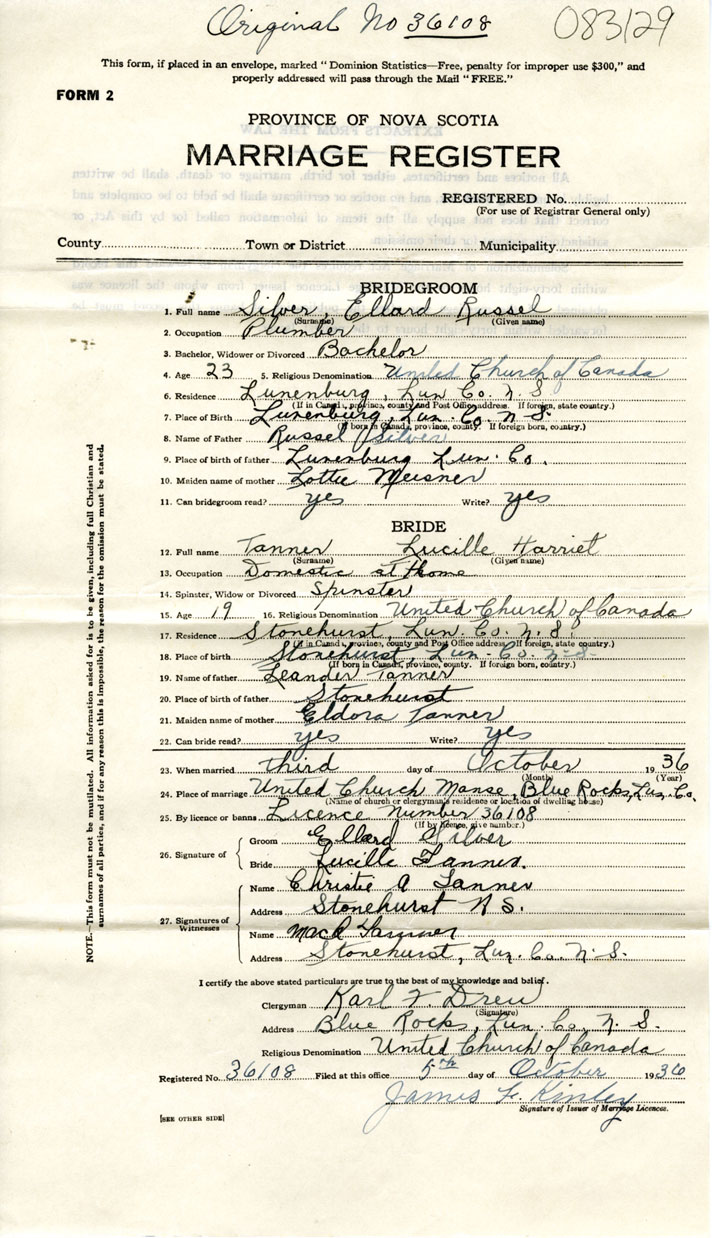 Original No 36108
083129
This form, if placed in an envelope, marked "Dominion Statistics—Free, penalty for improper use $300," and
properly addressed will pass through the Mail "FREE."
FORM 2
PROVINCE OF NOVA SCOTIA
MARRIAGE REGISTER
REGISTERED No.
(For use of Registrar General only)
County Town or District Municipality
BRIDEGROOM
1. Full name Silver, Ellard Russel
(Surname) (Given name)
2. Occupation Plumber
3. Bachelor, Widower or Divorced Bachelor
4. Age 23 5. Religious Denomination United Church of Canada
6. Residence Lunenburg, Lun Co. N. S
(If in Canada, province, county and Post Office address. If foreign, state country.)
7. Place of Birth Lunenburg, Lun. Co. N. S.
(If born in Canada, province, county. If foreign born, country.)
8. Name of Father Russel Silver
9. Place of birth of father Lunenburg Lun. Co.
10. Maiden name of mother Lottie Meisner
11. Can bridegroom read? yes Write? yes
BRIDE
12. Full name Tanner Lucille Harriet
(Surname) (Given name)
13. Occupation Domestic at Home
14. Spinster, Widow or Divorced Spinster
15. Age 19 16. Religious Denomination United Church of Canada
17. Residence Stonehurst, Lun. Co. N. S.
(If in Canada, province, county and Post Office address. If foreign, state country.)
18. Place of birth Stonehurst, Lun. Co. N. S.
(If born in Canada, province, county. If foreign born, country.)
19. Name of father Leander Tanner
20. Place of birth of father Stonehurst
21. Maiden name of mother Eldora Tanner
22. Can bride read? yes Write? yes
23. When married third day of October 1936
(Month) (Year)
24. Place of marriage United Church Manse, Blue Rocks, Lun. Co.
(Name of church or clergyman's residence or location of dwelling house)
25. By licence or banns Licence Number 36108
(If by licence, give number.)
26. Signature of Groom Ellard Silver
Bride Lucille Tanner.
27. Signatures of Witnesses
Name Christie A Tanner
Address Stonehurst N S.
Name Mack Tanner
Address Stonehurst, Lun. Co. N. S.
I certify the above stated particulars are true to the best of my knowledge and belief.
Clergyman Karl F. Drew
(Signature)
Address Blue Rocks, Lun. Co. N. S.
Religious Denomination United Church of Canada
Registered No. 36108 Filed at this office 5th day of October 1936
James F. Kinley
Signature of Issuer of Marriage Licences.
[SEE OTHER SIDE]
NOTE.—This form must not be mutilated. All information asked for is to be given, including full Christian and
surnames of all parties, and if for any reason this is impossible, the reason for the omission must be stated.